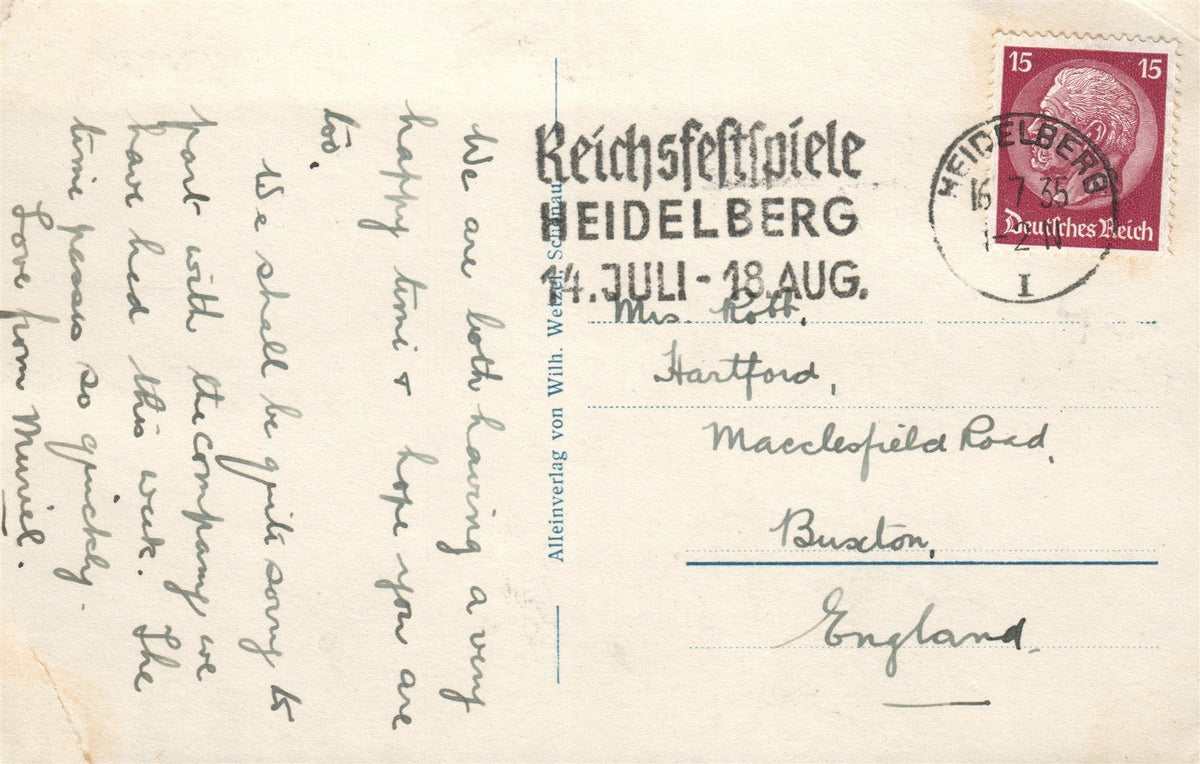 We are both having a very
happy time & hope you are
too.
We shall be quite sorry to
part with the company we
have had this week. The
time passes so quickly.
Love from Muriel.
Alleinverlag von Wilh. Wetzel, Schönau
Reichsfestspiele
HEIDELBERG
14. JULI - 18. AUG.
15 15
Deutsches Reich
HEIDELBERG
16 7 35
1-2 N
I
Mrs. Robb,
Hartford,
Macclesfield Road,
Buxton,
England.